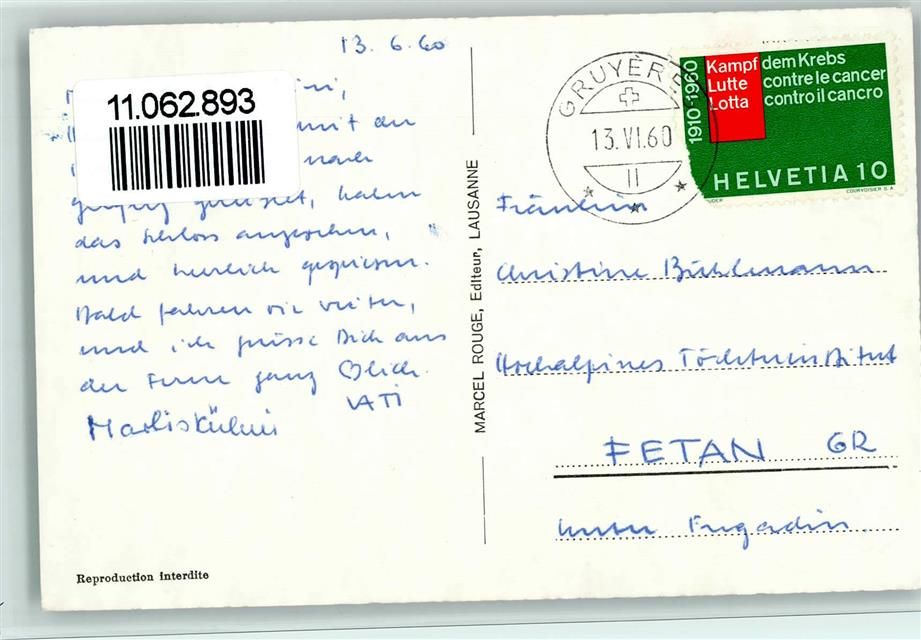 13. 6. 60
11.062.893
mit den
nach
gereist, haben
das Schloss angesehen,
und herrlich gespiesen.
Bald fahren wir weiter,
und ich grüsse Dich aus
der Ferne ganz ♡lich.
VATI
MARCEL ROUGE, Editeur, LAUSANNE
GRUYÈRES
13.VI.60
II
1910-1960
Kampf dem Krebs
Lutte contre le cancer
Lotta contro il cancro
HELVETIA 10
COURVOISIER S.A.
Fräulein
Christine Bühlmann
Hochalpines Töchterinstitut
FETAN GR
Unter Engadin
Reproduction interdite